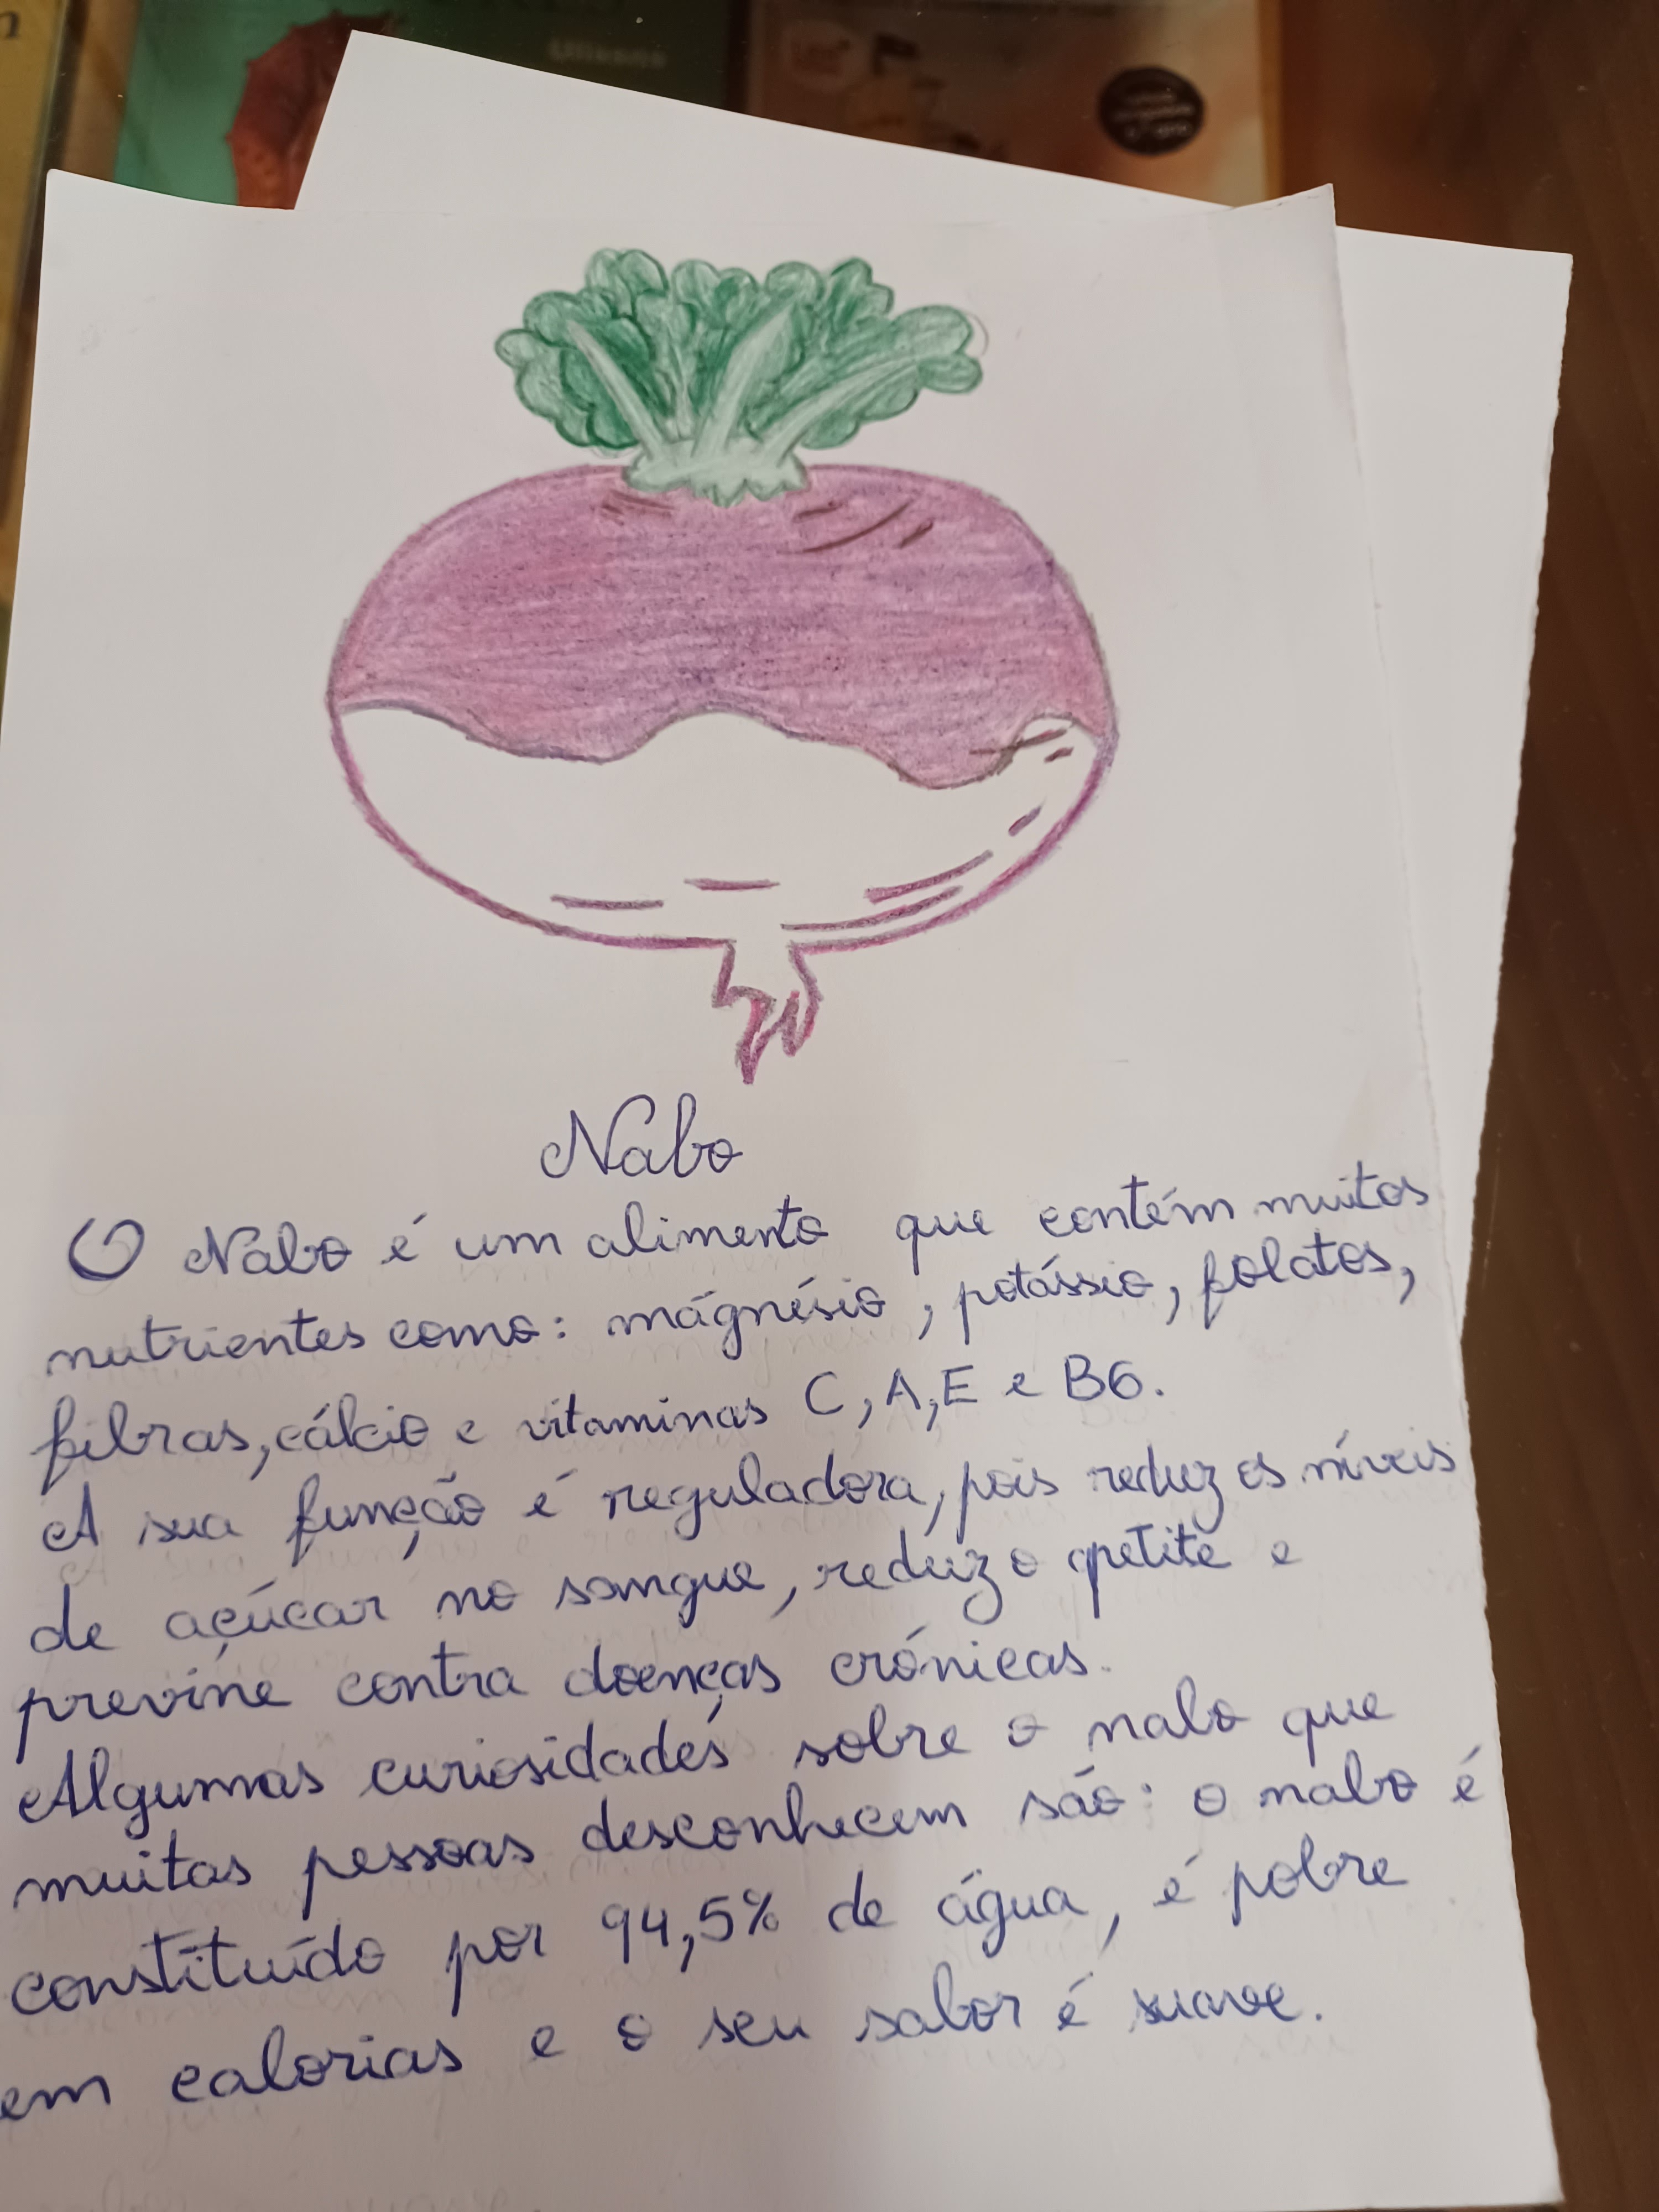 Nabo
O Nabo é um alimento que contém muitos
nutrientes como: mágnésio, potássio, folatos,
fibras, cálcio e vitaminas C, A, E e B6.
A sua função é reguladora, pois reduz os níveis
de açúcar no sangue, reduz o apetite e
previne contra doenças crónicas.
Algumas curiosidades sobre o nabo que
muitas pessoas desconhecem são: o nabo é
constituído por 94,5% de água, é pobre
em calorias e o seu sabor é suave.